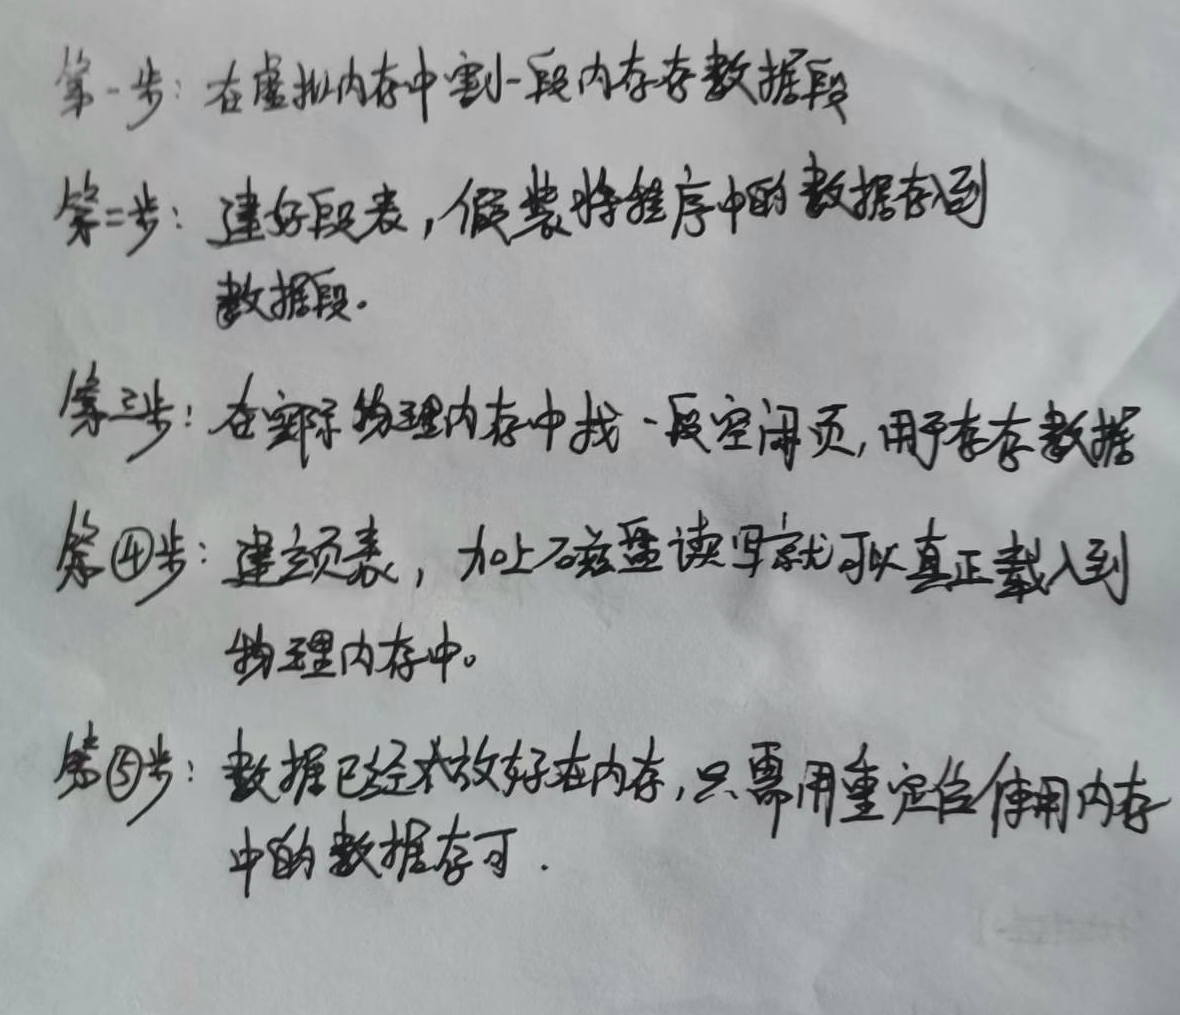 第一步：在虚拟内存中割一段内存存数据段
第二步：建好段表，假装将程序中的数据存到
数据段．
第三步：在实际物理内存中找一段空闲页，用于存存数据
第④步：建立页表，加上磁盘读写就可以真正载入到
物理内存中。
第⑤步：数据已经放好在内存，只需用重定位使用内存
中的数据存可．